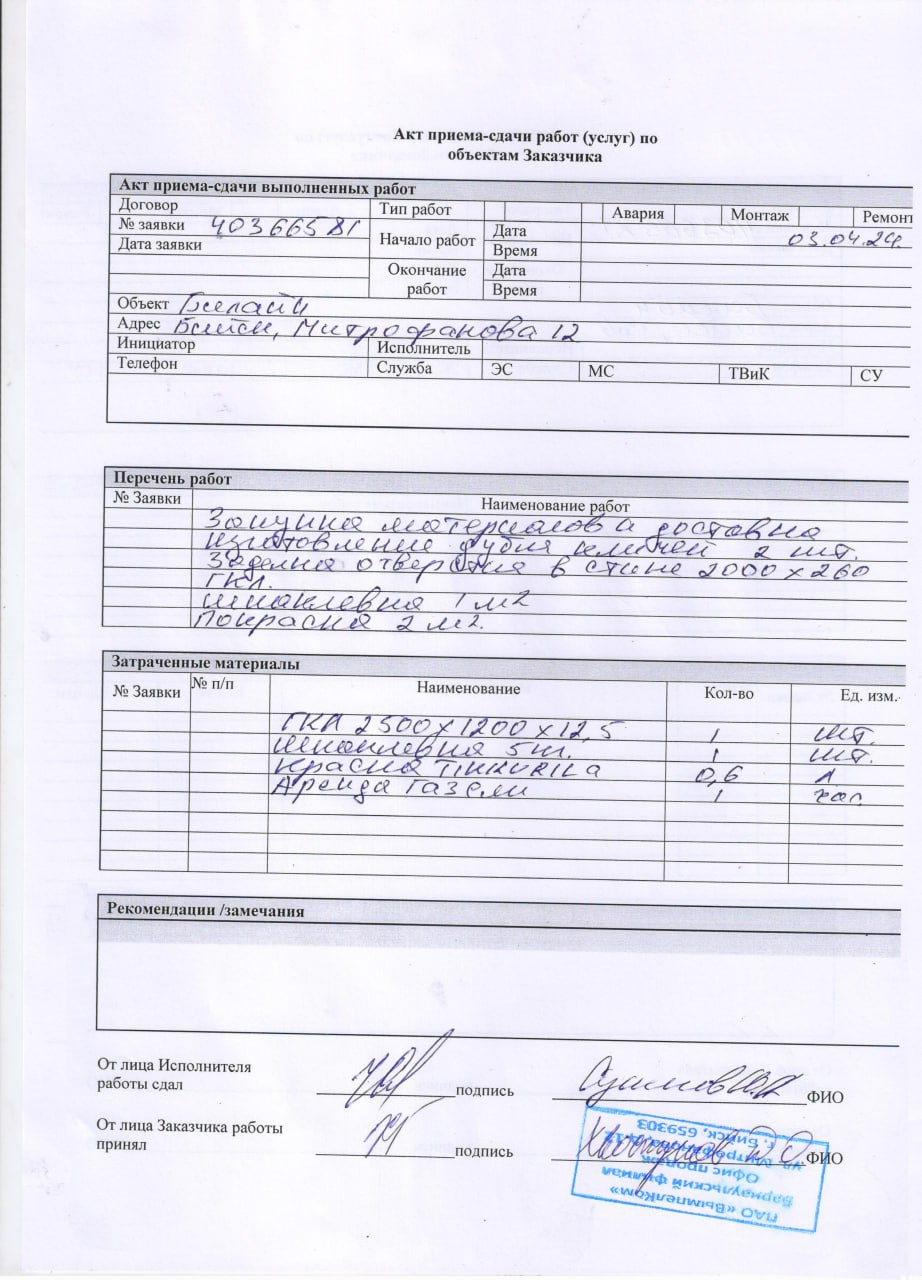 Акт приема-сдачи работ (услуг) по
объектам Заказчика
Акт приема-сдачи выполненных работ
Договор Тип работ Авария Монтаж Ремонт
№ заявки 40366581 Начало работ Дата 03.04.24.
Дата заявки Время
Окончание работ Дата
Время
Объект Билайн
Адрес Бийск, Митрофанова 12
Инициатор Исполнитель
Телефон Служба ЭС МС ТВиК СУ
Перечень работ
№ Заявки Наименование работ
Закупка материалов и доставка
изготовление дубля ключей 2 шт.
Заделка отверстия в стене 2000 х 260
ГКЛ.
шпаклевка 1 м2
покраска 2 м2.
Затраченные материалы
№ Заявки № п/п Наименование Кол-во Ед. изм.
ГКЛ 2500х1200х12,5 1 шт.
шпаклевка 5 кг. 1 шт.
краска TIKKURILA 0,6 л
Аренда Газели 1 час
Рекомендации /замечания
От лица Исполнителя
работы сдал подпись ФИО
От лица Заказчика работы
принял подпись ФИО
ПАО «Вымпелком»
Барнаульский филиал
Офис продаж
г. Бийск, 659303